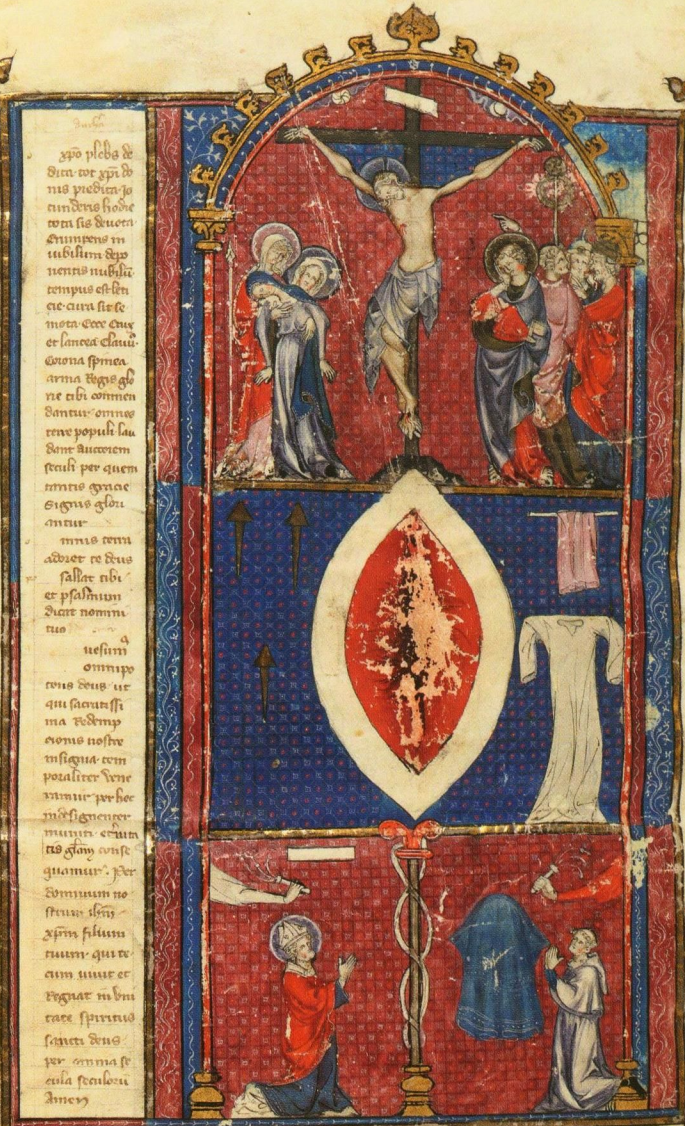 xpo plebs de
dica tot xpi do
nis predita io
cunderis hodie
tota sis deuota
Erumpens in
iubilum depo
nentis nubilū
tempus est leti
cie cura sit se
mota Ecce Crux
et lancea Clauū
Corona spinea
arma Regis glo
rie tibi commen
dantur omnes
terre populi lau
dant Auctorem
seculi per quem
tantis gracie
Signis glori
antur
mnis terra
adoret te deus
psallat tibi
et psalmum
dicat nomini
tuo
uesum̄
omnipo
tens deus ut
qui sacratissi
ma Redemp
cionis nostre
insignia tem
poraliter vene
ramur per hec
indesignenter
muniti et̄nita
tis gl̄am conse
quamur. Per
dominum no
strum ih̄m
xp̄m filium
tuum qui te
cum uiuit et
Regnat in vni
tate spiritus
sancti deus
per omnia se
cula seculorū
Amen